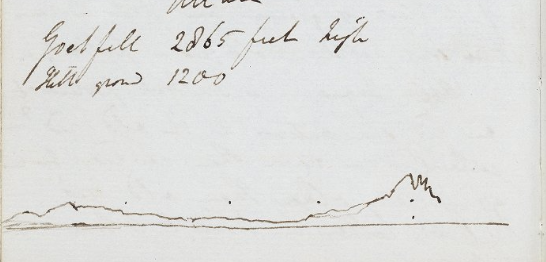 Goatfell 2865 feet high
ground 1200